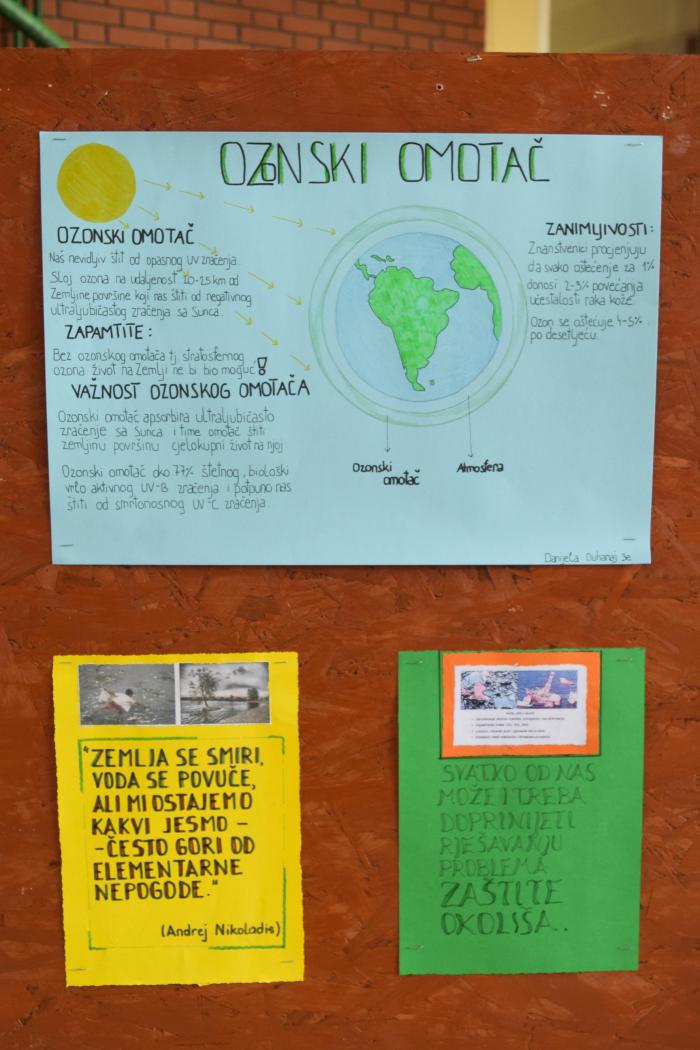 OZONSKI OMOTAČ
OZONSKI OMOTAČ
Naš nevidljiv štit od opasnog UV zračenja.
Sloj ozona na udaljenost 20-25 km od
Zemljine površine koji nas štiti od negativnog
ultraljubičastog zračenja sa Sunca.
ZAPAMTITE:
Bez ozonskog omotača tj. stratosfernog
ozona život na Zemlji ne bi bio moguć!
VAŽNOST OZONSKOG OMOTAČA
Ozonski omotač apsorbira ultraljubičasto
zračenje sa Sunca i time omotač štiti
zemljinu površinu cjelokupni život na njoj
Ozonski omotač oko 77% štetnog, biološki
vrlo aktivnog UV-B zračenja i potpuno nas
štiti od smrtonosnog UV-C zračenja.
Ozonski
omotač
Atmosfera
ZANIMLJIVOSTI:
Znanstvenici procjenjuju
da svako oštećenje za 1%
donosi 2-3% povećanja
učestalosti raka kože.
Ozon se oštećuje 4-5%
po desetljeću.
Danijela Duhanaj 3e
"ZEMLJA SE SMIRI,
VODA SE POVUČE,
ALI MI OSTAJEMO
KAKVI JESMO –
-ČESTO GORI OD
ELEMENTARNE
NEPOGODE."
(Andrej Nikoladis)
SVATKO OD NAS
MOŽE I TREBA
DOPRINIJETI
RJEŠAVANJU
PROBLEMA
ZAŠTITE
OKOLIŠA.